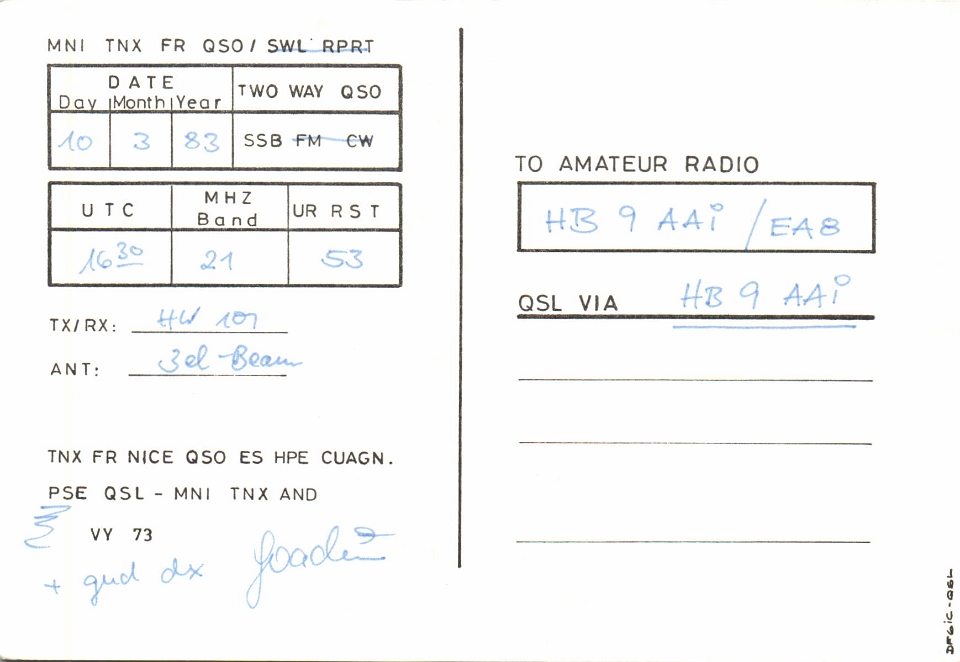 MNI TNX FR QSO / SWL RPRT
DATE
Day Month Year
TWO WAY QSO
10 3 83
SSB FM CW
UTC
MHZ Band
UR RST
16 30
21
53
TX/RX: HW 101
ANT: 3el Beam
TNX FR NICE QSO ES HPE CUAGN.
PSE QSL - MNI TNX AND
VY 73
+ gud dx
TO AMATEUR RADIO
HB 9 AAi / EA8
QSL VIA HB 9 AAi
DF6iC-QSL